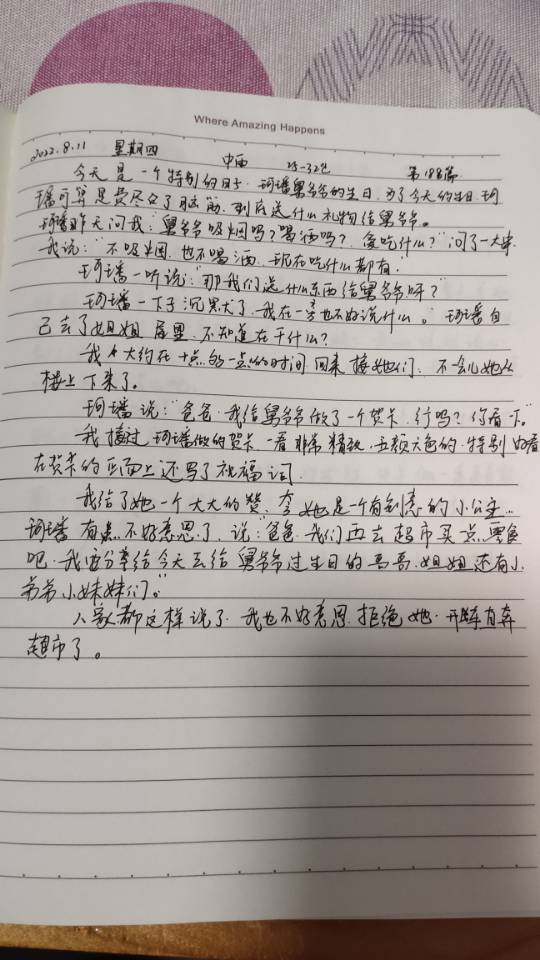 Where Amazing Happens
2022.8.11 星期四 中雨 25-32℃ 第188篇
今天是一个特别的日子,珂璠舅爷爷的生日,为了今天的生日,珂
璠可算是费尽了脑筋,到底送什么礼物给舅爷爷。
珂璠昨天问我:"舅爷爷吸烟吗?喝酒吗?爱吃什么?"问了一大串
我说:"不吸烟,也不喝酒,现在吃什么都有。"
珂璠一听说:"那我们送什么东西给舅爷爷呀?"
珂璠一下子沉默了,我在一旁也不好说什么。珂璠自
己去了姐姐房里,不知道在干什么?
我大约在十点够一点的时间回来接她们,不一会儿她从
楼上下来了。
珂璠说:"爸爸,我给舅爷爷做了一个贺卡,行吗?你看下。"
我接过珂璠做的贺卡一看非常精致,五颜六色的,特别好看
在贺卡的正面上还写了祝福词.
我给了她一个大大的赞,夸她是一个有创意的小公主..
珂璠有点不好意思了,说:"爸爸,我们再去超市买点零食
吧,我要分享给今天去给舅爷爷过生日的哥哥、姐姐还有小
弟弟小妹妹们。"
人家都这样说了,我也不好意思拒绝她,开车直奔
超市了。